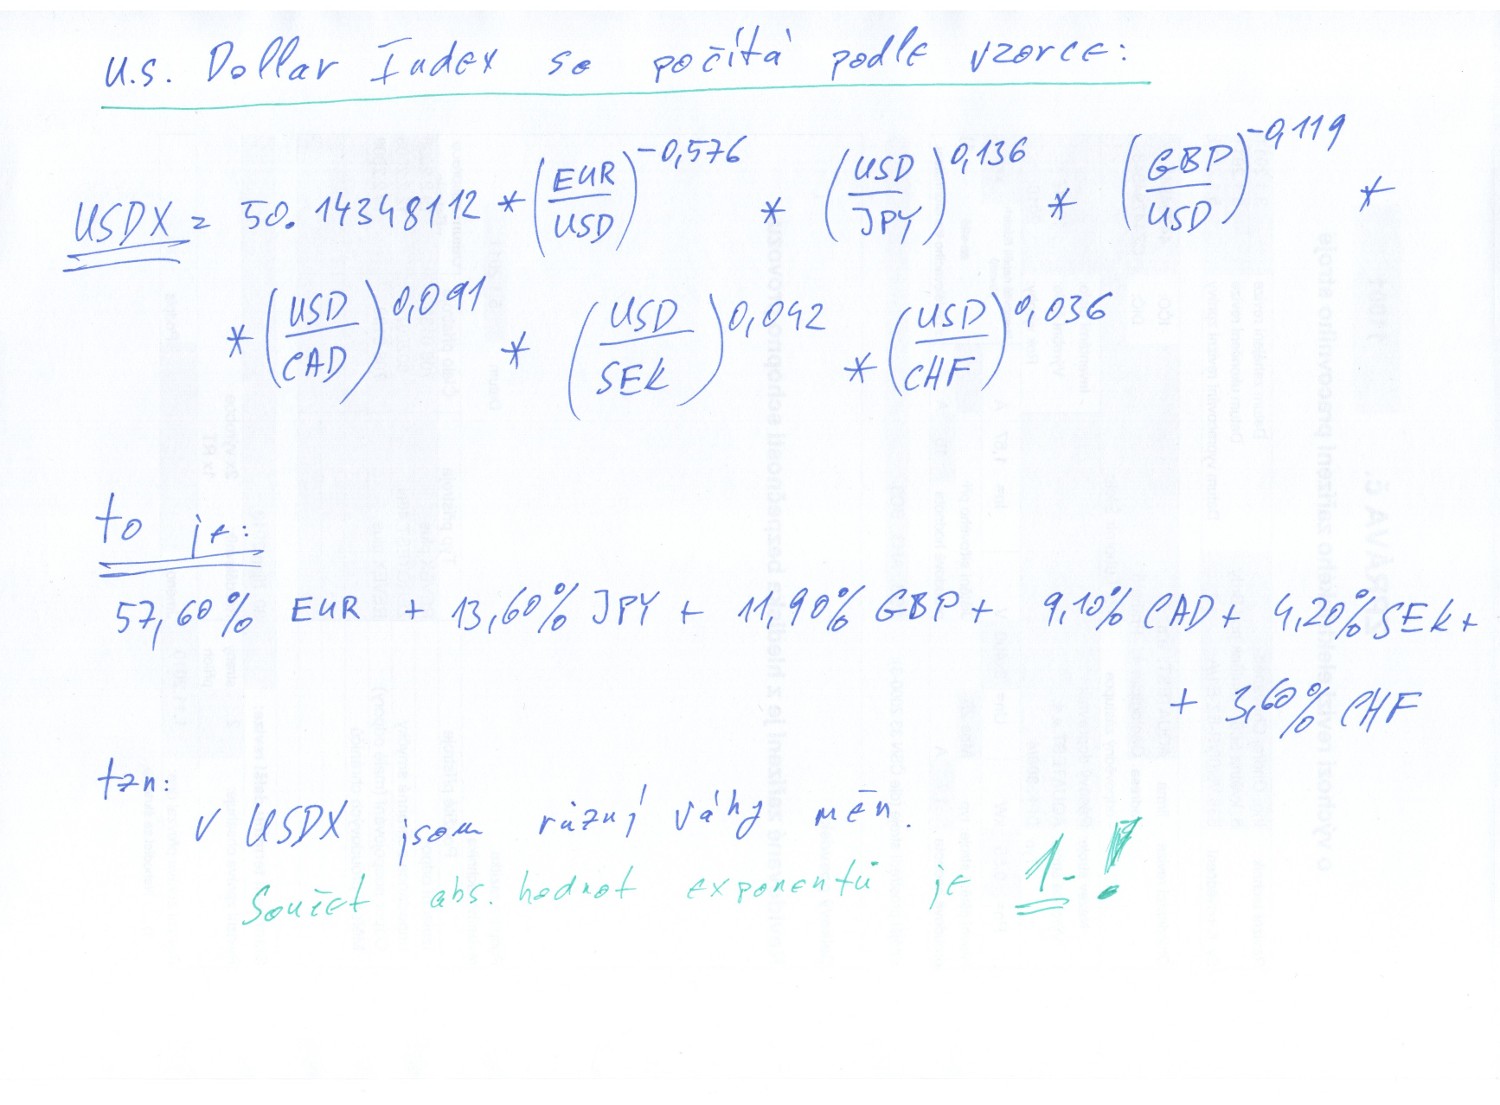 U.S. Dollar Index se počítá podle vzorce:
USDX = 50.14348112 * (EUR/USD)^-0,576 * (USD/JPY)^0,136 * (GBP/USD)^-0,119 *
* (USD/CAD)^0,091 * (USD/SEK)^0,042 * (USD/CHF)^0,036
to je:
57,60% EUR + 13,60% JPY + 11,90% GBP + 9,10% CAD + 4,20% SEK +
+ 3,60% CHF
tzn:
v USDX jsou různý váhy měn.
Součet abs. hodnot exponentů je 1-!